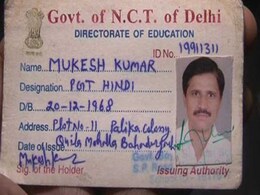 Govt. of N.C.T. of Delhi
DIRECTORATE OF EDUCATION
ID No. 19911311
Name MUKESH KUMAR
Designation PGT HINDI
D/B 20-12-1968
Address Plot No-11 Palika colony
Date of Issue Quila Mohalla
Mukesh
Sig. of the Holder
Issuing Authority